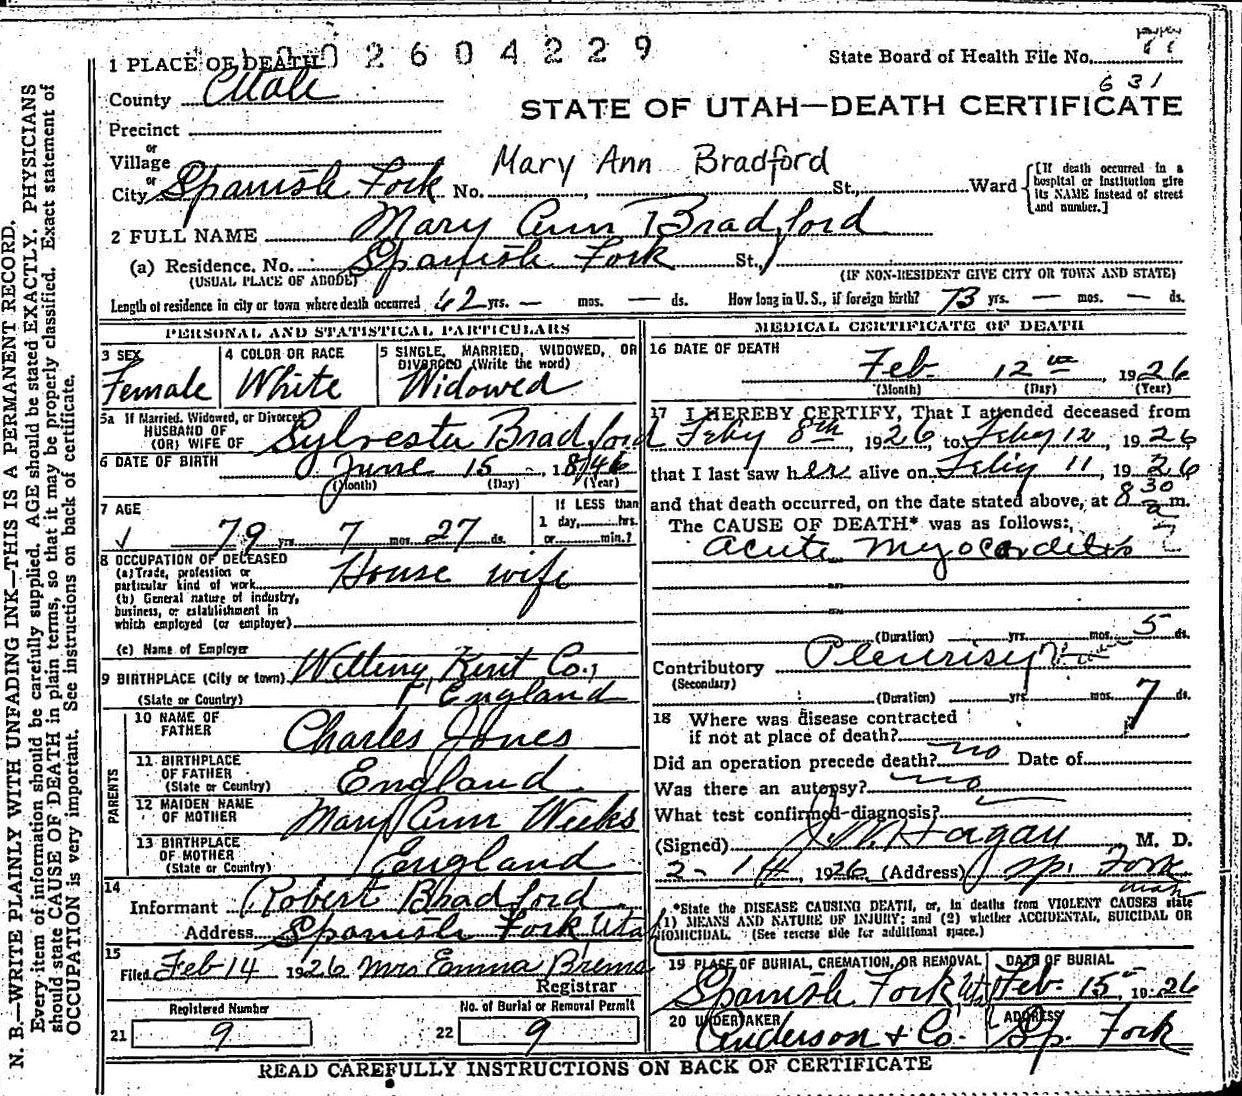 1 PLACE OF DEATH 002604229 State Board of Health File No.
631
County Utah
STATE OF UTAH—DEATH CERTIFICATE
Precinct
or
Village
Mary Ann Bradford
or
City Spanish Fork No. St., Ward {[If death occurred in a hospital or institution give its NAME instead of street and number.]
2 FULL NAME Mary Ann Bradford
(a) Residence. No. Spanish Fork St.,
(USUAL PLACE OF ABODE) (IF NON-RESIDENT GIVE CITY OR TOWN AND STATE)
Length of residence in city or town where death occurred 62 yrs. — mos. — ds. How long in U. S., if foreign birth? 73 yrs. — mos. — ds.
PERSONAL AND STATISTICAL PARTICULARS
3 SEX
Female
4 COLOR OR RACE
White
5 SINGLE, MARRIED, WIDOWED, OR
DIVORCED (Write the word)
Widowed
5a If Married, Widowed, or Divorced
HUSBAND OF
(OR) WIFE OF Sylvester Bradford
6 DATE OF BIRTH June 15, 1846
(Month) (Day) (Year)
7 AGE
79 yrs. 7 mos. 27 ds.
If LESS than
1 day, hrs.
or min.?
8 OCCUPATION OF DECEASED
(a) Trade, profession or
particular kind of work House wife
(b) General nature of industry,
business, or establishment in
which employed (or employer)
(c) Name of Employer
9 BIRTHPLACE (City or town) Kent Co.,
(State or Country) England
PARENTS
10 NAME OF
FATHER Charles Jones
11 BIRTHPLACE
OF FATHER
(State or Country) England
12 MAIDEN NAME
OF MOTHER Mary Ann Weeks
13 BIRTHPLACE
OF MOTHER
(State or Country) England
14
Informant Robert Bradford
Address Spanish Fork Utah
15
Filed Feb 14 1926 Mrs Emma
Registrar
Registered Number
21 9
No. of Burial or Removal Permit
22 9
MEDICAL CERTIFICATE OF DEATH
16 DATE OF DEATH
Feb. 12th, 1926
(Month) (Day) (Year)
17 I HEREBY CERTIFY, That I attended deceased from
Feby 8th, 1926, to Feby 12, 1926
that I last saw her alive on Feby 11, 1926
and that death occurred, on the date stated above, at 8 30 a m.
The CAUSE OF DEATH* was as follows:
Acute Myocarditis
(Duration) yrs. mos. 5 ds.
Contributory Pleurisy
(Secondary)
(Duration) yrs. mos. 7 ds.
18 Where was disease contracted
if not at place of death?
Did an operation precede death? no Date of
Was there an autopsy? no
What test confirmed diagnosis?
(Signed) J. W. Hagan, M. D.
2-14, 1926 (Address) Sp. Fork
Utah
*State the DISEASE CAUSING DEATH, or, in deaths from VIOLENT CAUSES state
(1) MEANS AND NATURE OF INJURY; and (2) whether ACCIDENTAL, SUICIDAL OR
HOMICIDAL. (See reverse side for additional space.)
19 PLACE OF BURIAL, CREMATION, OR REMOVAL
Spanish Fork Ut
DATE OF BURIAL
Feb. 15, 1926
20 UNDERTAKER
Anderson & Co.
ADDRESS
Sp. Fork
READ CAREFULLY INSTRUCTIONS ON BACK OF CERTIFICATE
N. B.—WRITE PLAINLY WITH UNFADING INK—THIS IS A PERMANENT RECORD.
Every item of information should be carefully supplied. AGE should be stated EXACTLY. PHYSICIANS
should state CAUSE OF DEATH in plain terms, so that it may be properly classified. Exact statement of
OCCUPATION is very important. See instructions on back of certificate.